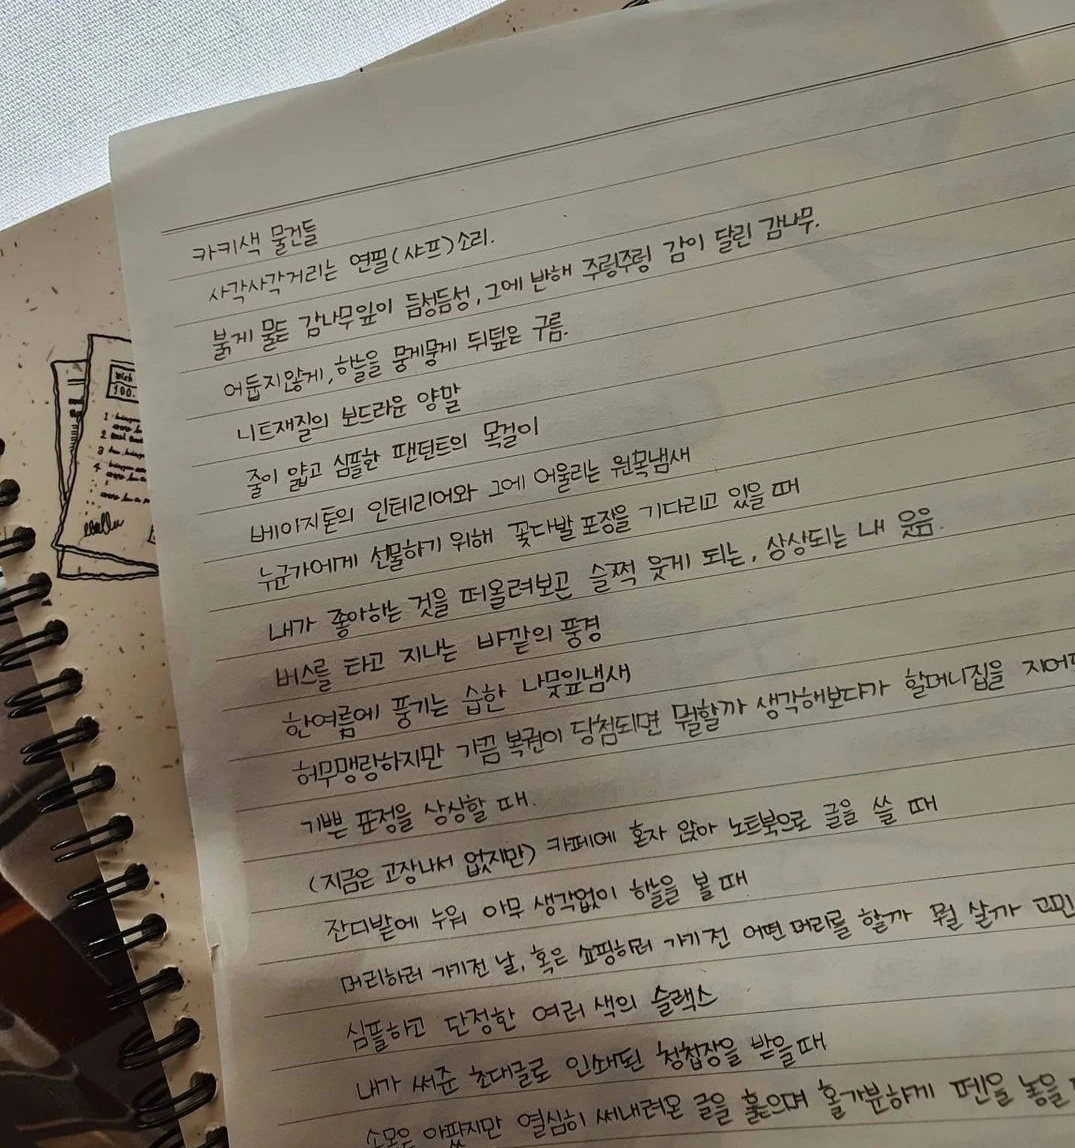 카키색 물건들
사각사각거리는 연필(샤프)소리.
붉게 물든 감나무잎이 듬성듬성, 그에 반해 주렁주렁 감이 달린 감나무.
어둡지않게, 하늘을 뭉게뭉게 뒤덮은 구름.
니트재질의 보드라운 양말
줄이 얇고 심플한 팬던트의 목걸이
베이지톤의 인테리어와 그에 어울리는 원목냄새
누군가에게 선물하기 위해 꽃다발 포장을 기다리고 있을 때
내가 좋아하는 것을 떠올려보곤 슬쩍 웃게 되는, 상상되는 내 웃음.
버스를 타고 지나는 바깥의 풍경
한여름에 풍기는 습한 나뭇잎냄새
허무맹랑하지만 가끔 복권이 당첨되면 뭘할까 생각해보다가 할머니집을 지어
기쁜 표정을 상상할 때.
(지금은 고장나서 없지만) 카페에 혼자 앉아 노트북으로 글을 쓸 때
잔디밭에 누워 아무 생각없이 하늘을 볼 때
머리하러 가기전 날, 혹은 쇼핑하러 가기전 어떤 머리를 할까 뭘 살까 고민
심플하고 단정한 여러 색의 슬랙스
내가 써준 초대글로 인쇄된 청첩장을 받을때
소모은 아팠지만 열심히 써내려온 글을 훑으며 홀가분하게 펜을 놓을